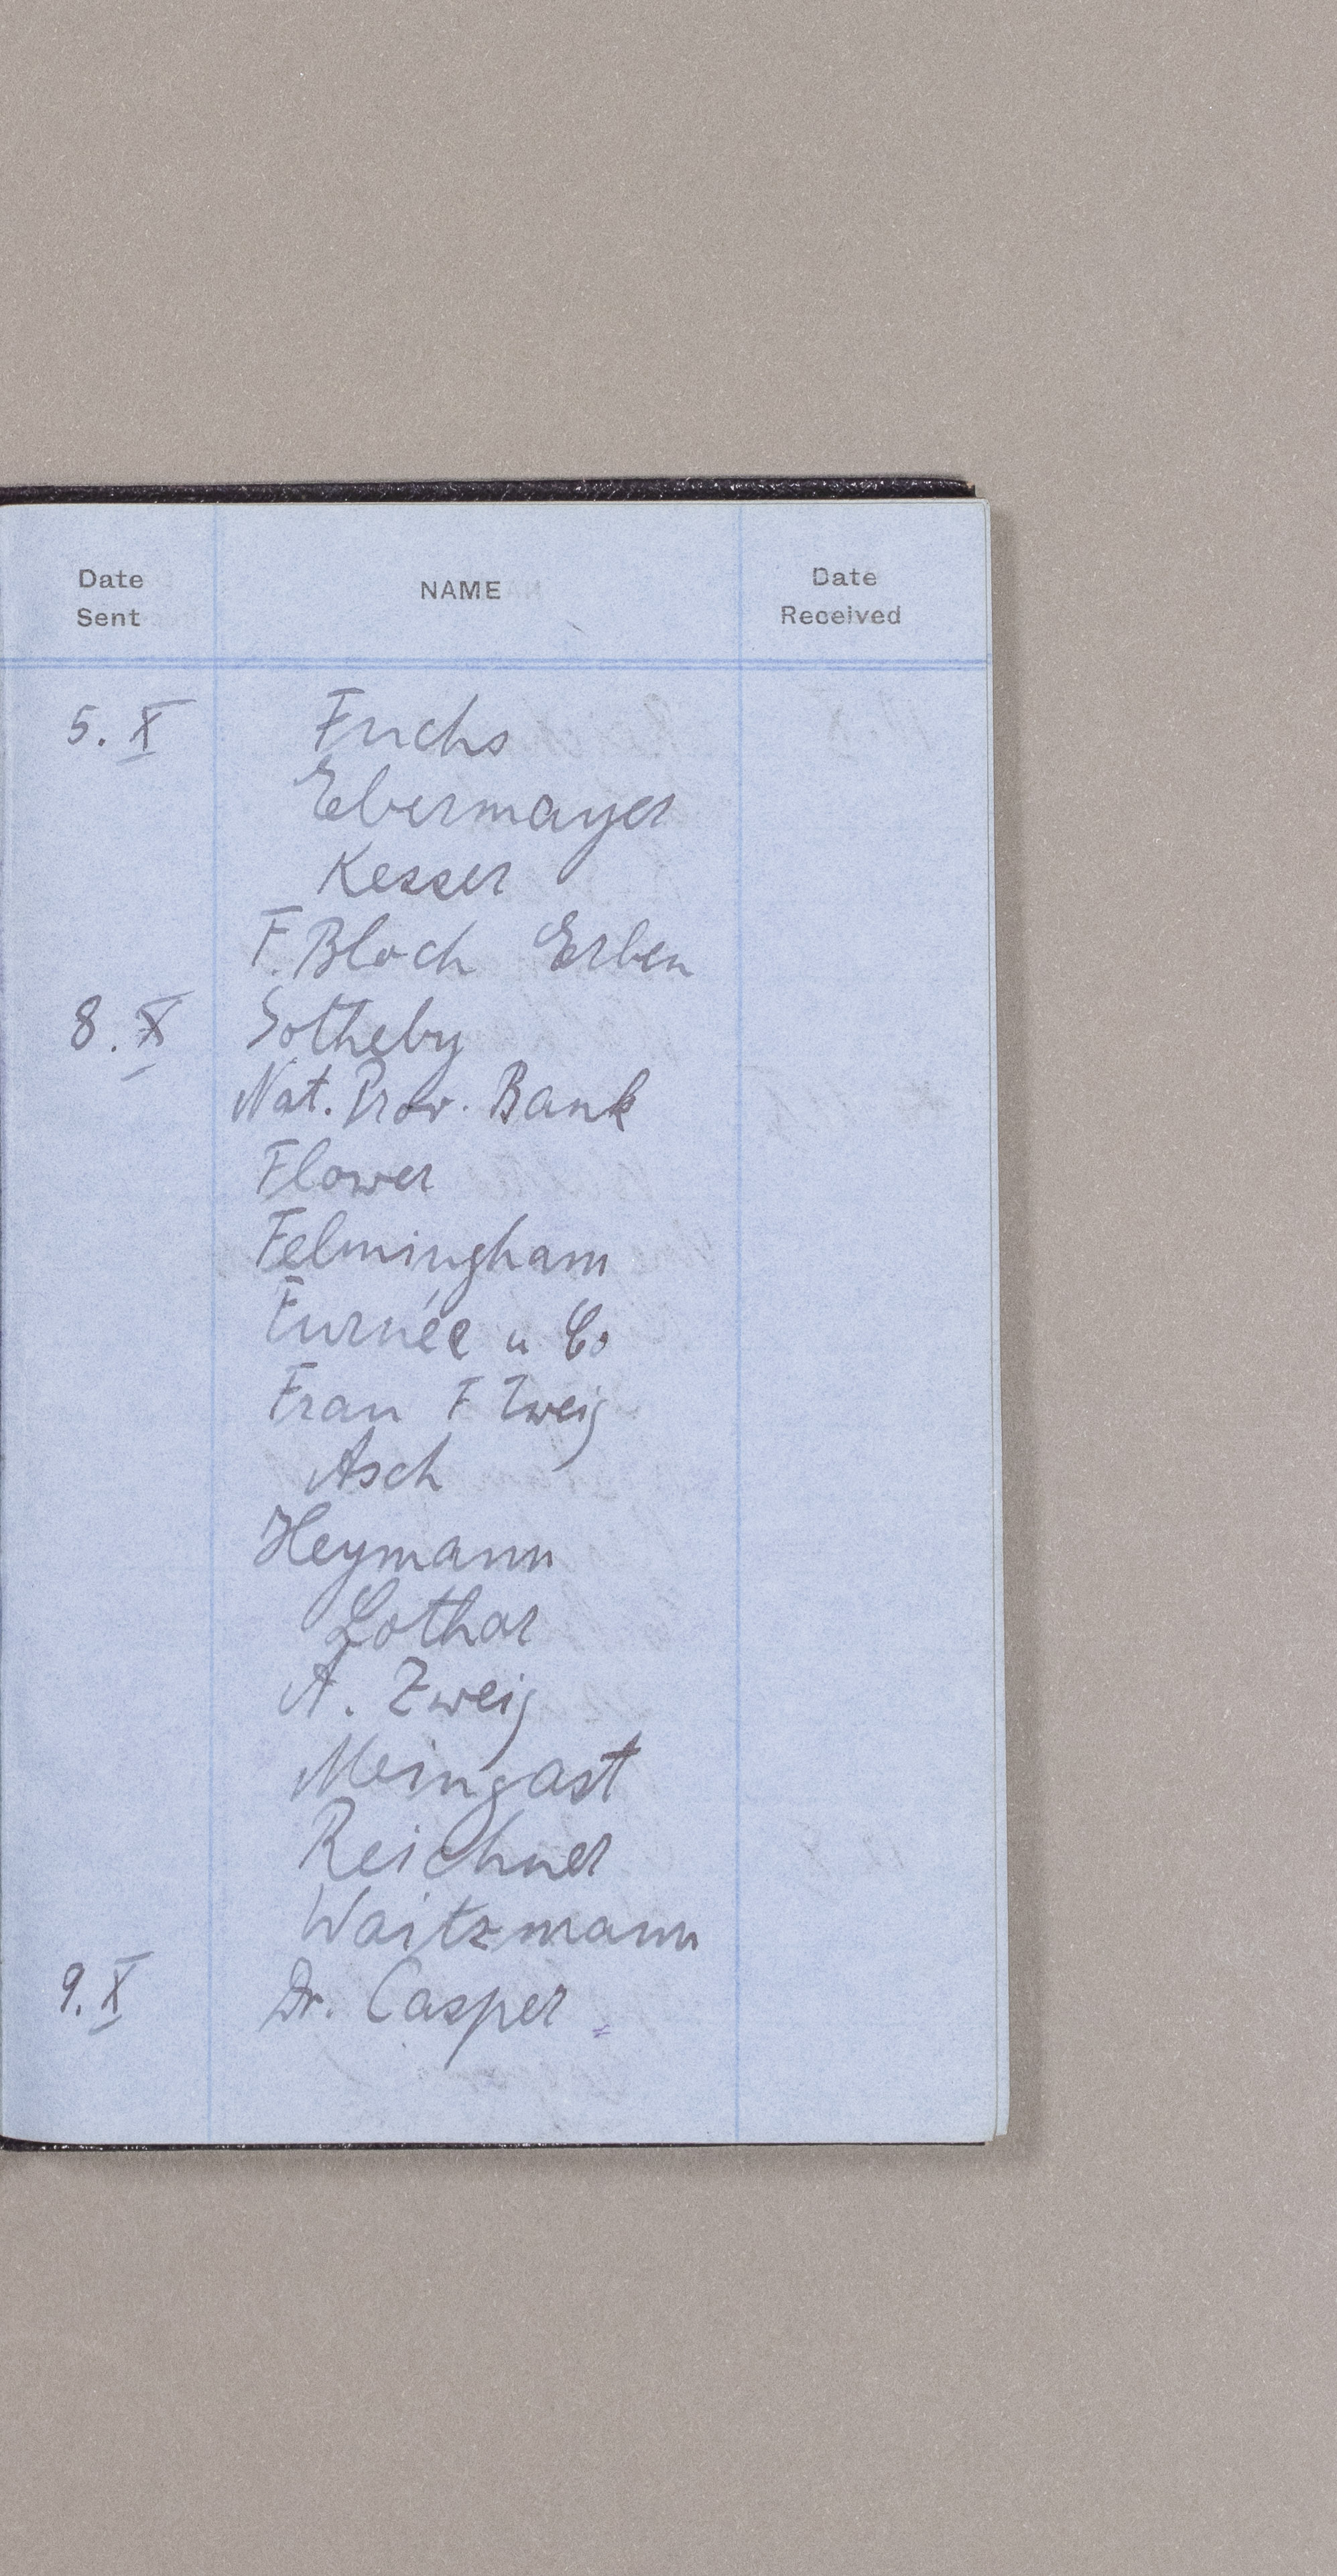 Date Sent NAME Date Received
5. X Fuchs
Ebermayer
Kesser
F. Bloch Erben
8. X Sotheby
Nat. Prov. Bank
Flower
Felmingham
Furnée u Co
Frau F Zweig
Asch
Heymann
Lothar
A. Zweig
Meingast
Reichner
Waitzmann
9. X Dr. Casper